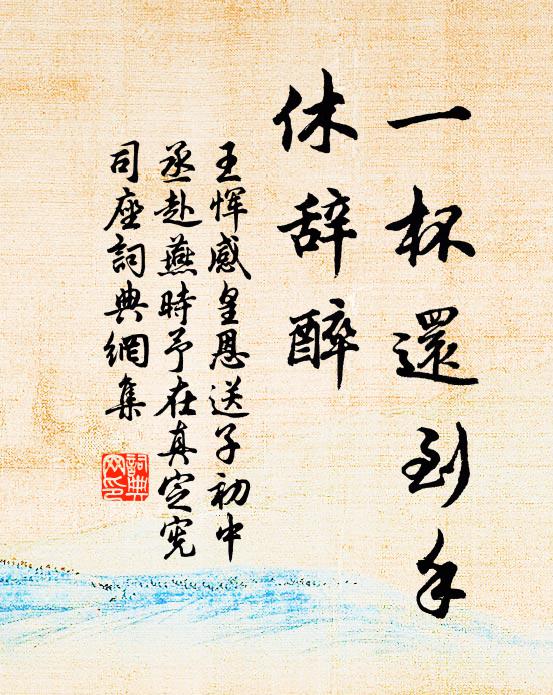 一杯還到手
休辞醉
王恽感皇恩送子初中
丞赴燕時予在真定宪
司座詞典網集
詞典网印